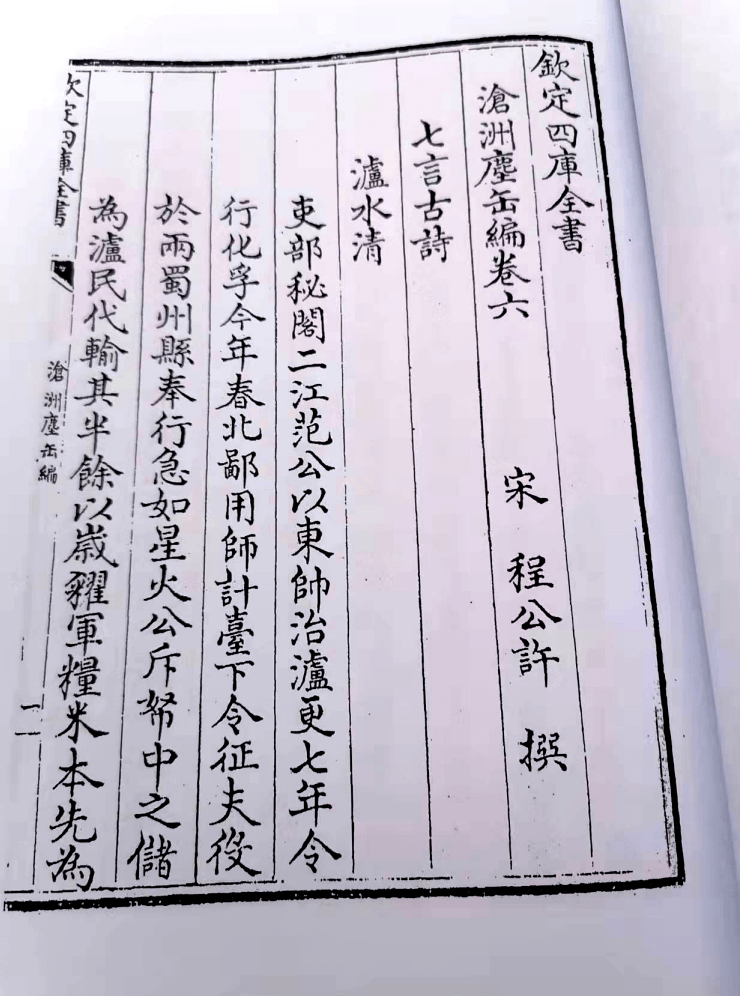 欽定四庫全書
滄洲塵缶編卷六
宋 程公許 撰
七言古詩
瀘水清
吏部秘閣二江范公以東帥治瀘更七年令
行化孚今年春北鄙用師計臺下令征夫役
於兩蜀州縣奉行急如星火公斥帑中之儲
為瀘民代輸其半餘以歲糴軍糧米本先為
欽定四庫全書
滄洲塵缶編
一